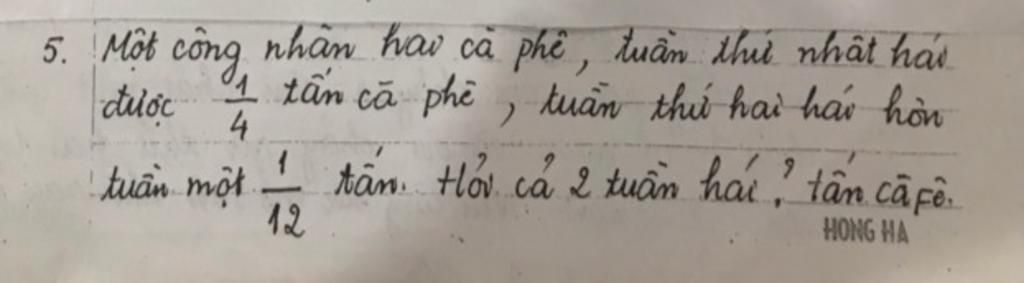 5. Một công nhân hái cà phê, tuần thứ nhất hái
được 1/4 tấn cà phê, tuần thứ hai hái hơn
tuần một 1/12 tấn. Hỏi cả 2 tuần hái ? tấn cà fê.
HONG HA